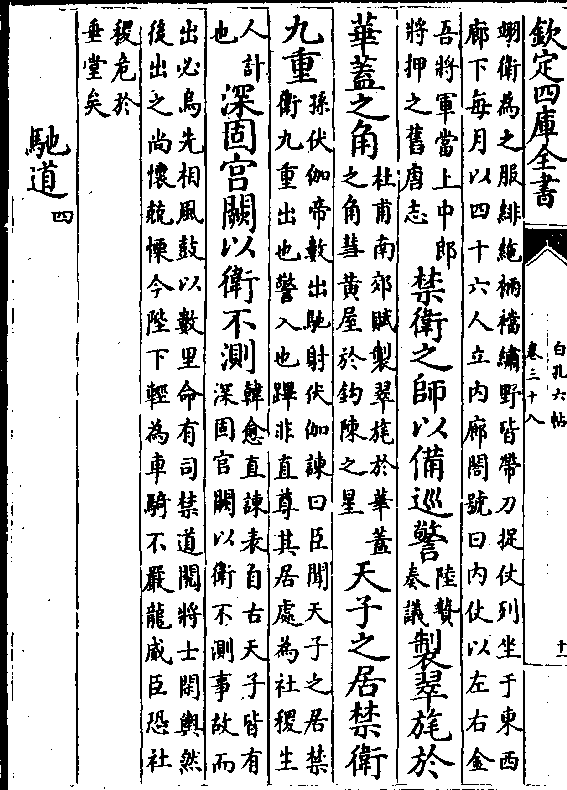 欽定四庫全書
白孔六帖
卷三十八
翊衛為之服緋絁裲襠繡野皆帶刀捉仗列坐于東西
廊下每月以四十六人立内廊閤號曰内仗以左右金
吾將軍當上中郎
將押之舊唐志
禁衛之師以備巡警
陸贄
奏議
製翠旄於
華蓋之角
杜甫南郊賦製翠旄於華蓋
之角彗黄屋於鈎陳之星
天子之居禁衛
九重
孫伏伽帝數出馳射伏伽諫曰臣聞天子之居禁
衛九重出也警入也蹕非直尊其居處為社稷生
人計
也
深固宫闕以衛不測
韓愈直諫表自古天子皆有
深固宫闕以衛不測事故而
出必烏先相風鼓以數里命有司禁道閱將士閑輿然
後出之尚懷兢慄今陛下輕為車騎不嚴龍威臣恐社
稷危於
垂堂矣
馳道四